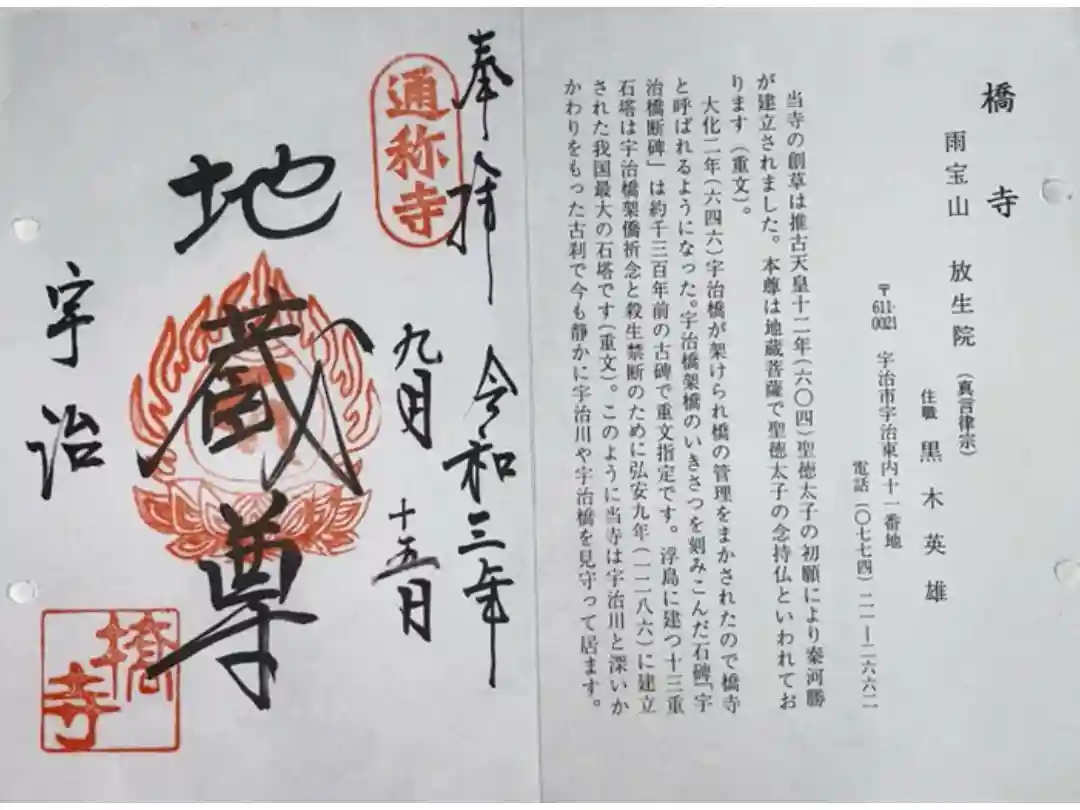 橋寺
雨宝山 放生院 (真言律宗)
住職 黒木英雄
〒611-0021 宇治市宇治東内十一番地
電話(〇七七四)二一―二六六二
当寺の創草は推古天皇十二年(六〇四)聖徳太子の初願により秦河勝
が建立されました。本尊は地蔵菩薩で聖徳太子の念持仏といわれてお
ります(重文)。
大化二年(六四六)宇治橋が架けられ橋の管理をまかされたので橋寺
と呼ばれるようになった。宇治橋架橋のいきさつを刻みこんだ石碑「宇
治橋断碑」は約千三百年前の古碑で重文指定です。浮島に建つ十三重
石塔は宇治橋架僑祈念と殺生禁断のために弘安九年(一二八六)に建立
された我国最大の石塔です(重文)。このように当寺は宇治川と深いか
かわりをもった古刹で今も静かに宇治川や宇治橋を見守って居ます。
奉拝 令和三年
九月十五日
通称寺
地蔵尊
宇治
橋寺